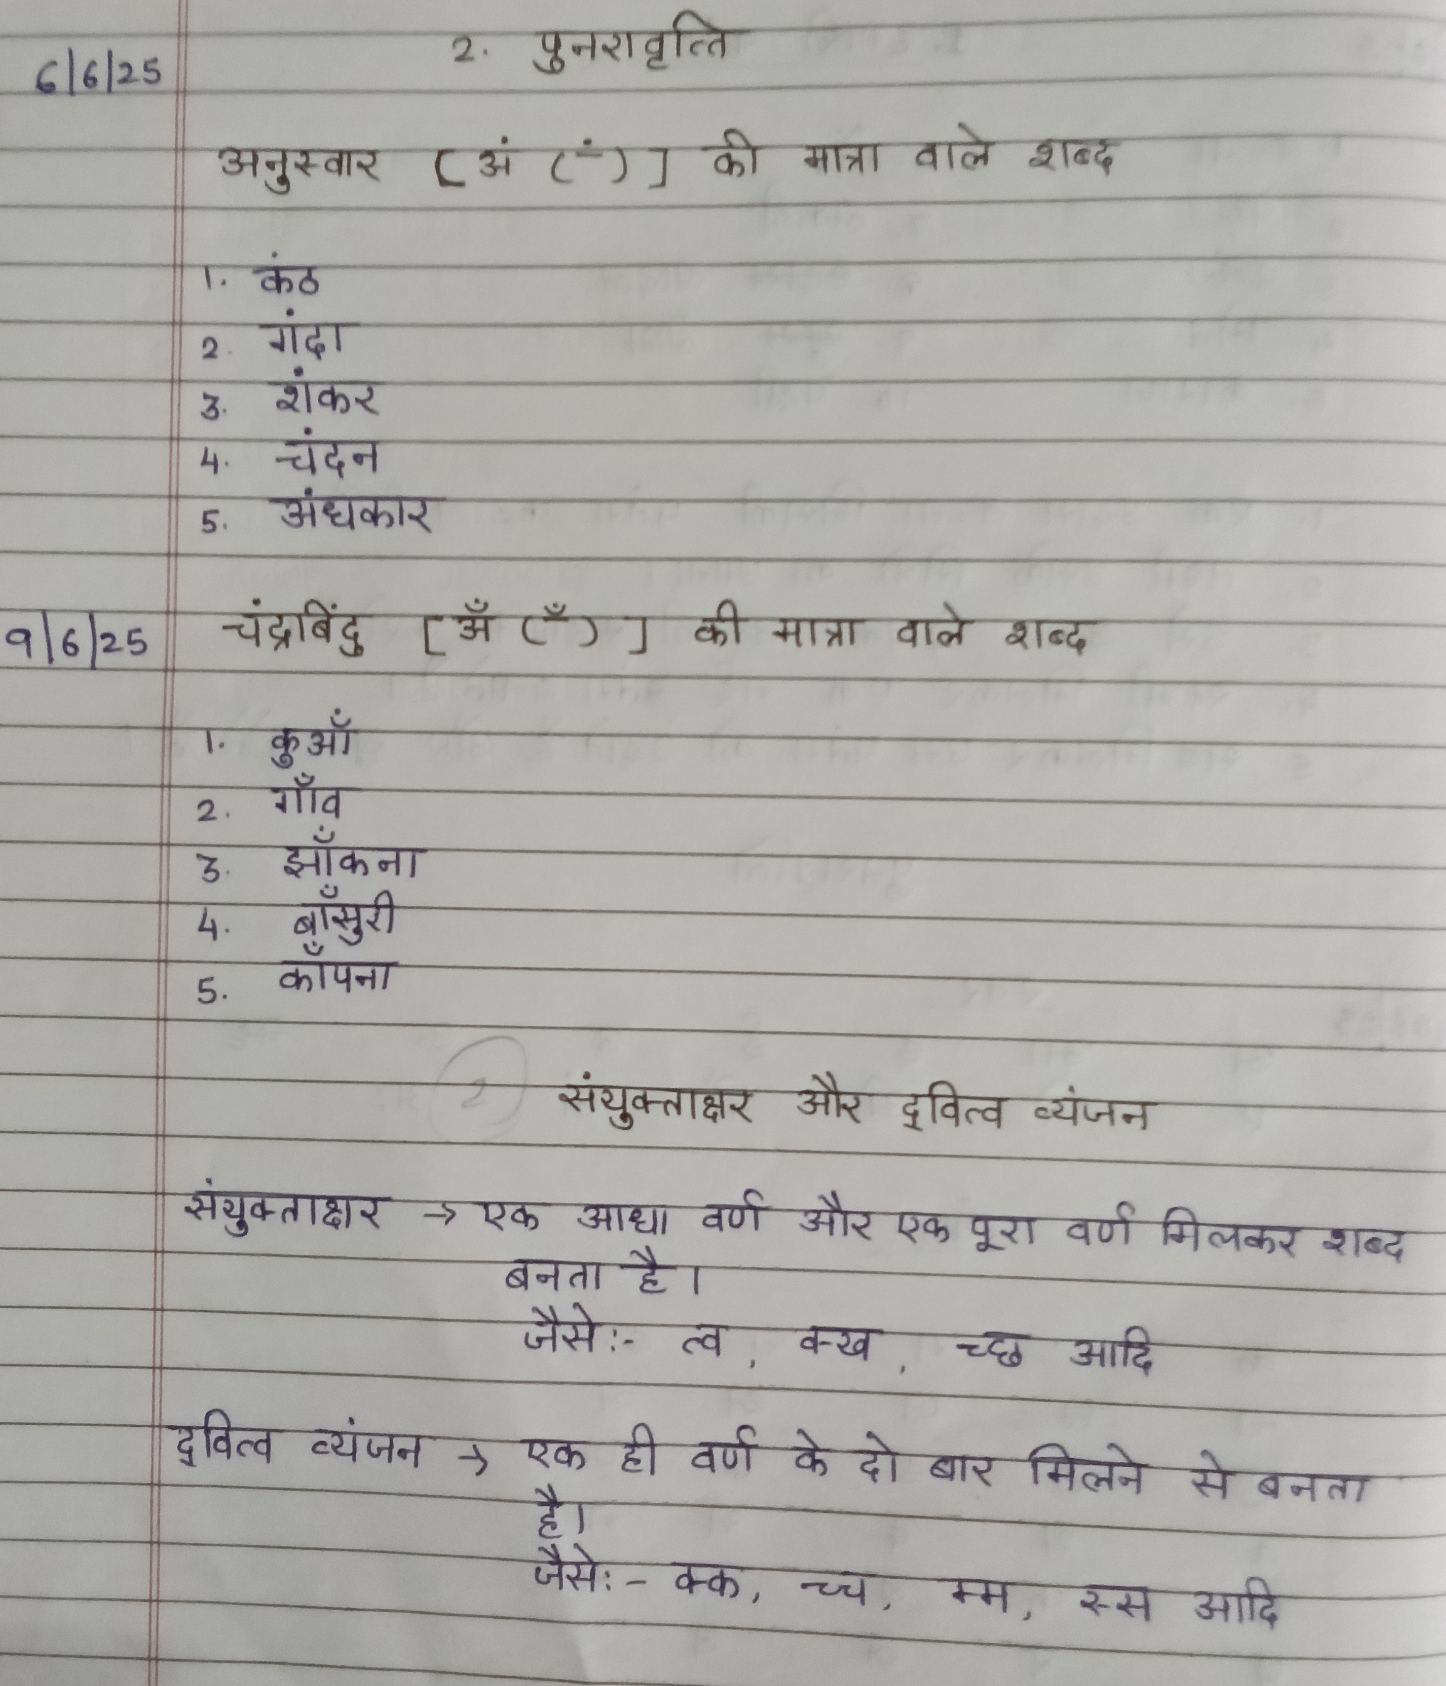 2. पुनरावृत्ति
6/6/25
अनुस्वार [अं (ं)] की मात्रा वाले शब्द
1. कंठ
2. गंदा
3. शंकर
4. चंदन
5. अंधकार
9/6/25 चंद्रबिंदु [अँ (ँ)] की मात्रा वाले शब्द
1. कुआँ
2. गाँव
3. झाँकना
4. बाँसुरी
5. काँपना
2 संयुक्ताक्षर और द्‌वित्व व्यंजन
संयुक्ताक्षर → एक आधा वर्ण और एक पूरा वर्ण मिलकर शब्द
बनता है।
जैसे:- त्व, क्ख, च्छ आदि
द्‌वित्व व्यंजन → एक ही वर्ण के दो बार मिलने से बनता
है।
जैसे:- क्क, च्च, म्म, स्स आदि